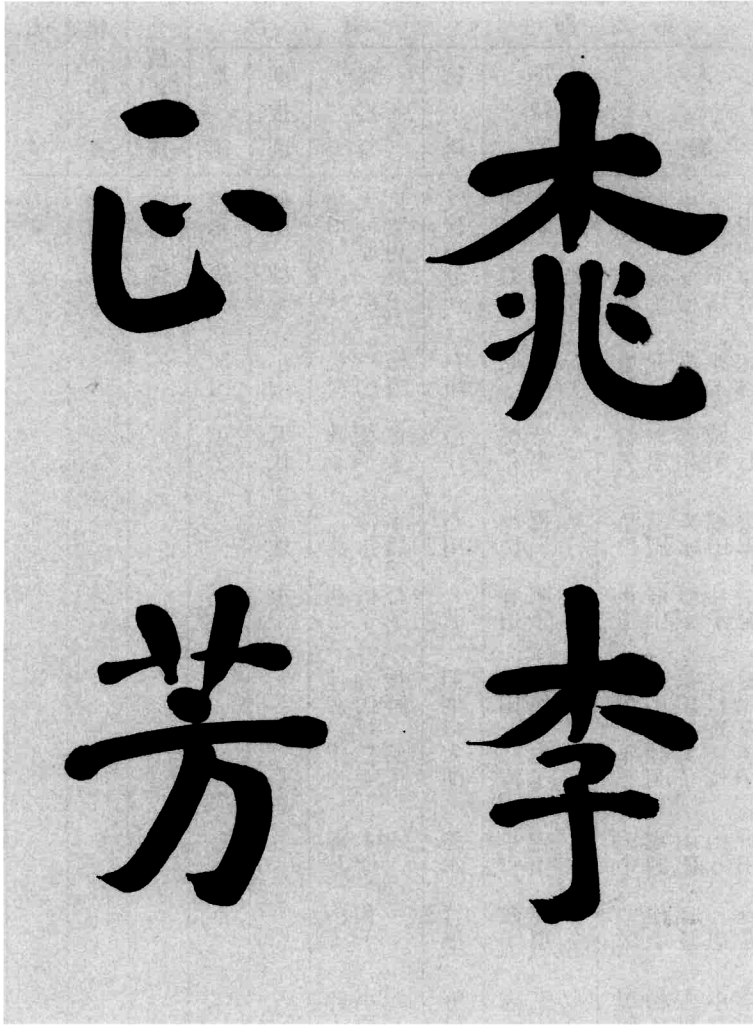 桃李
正芳